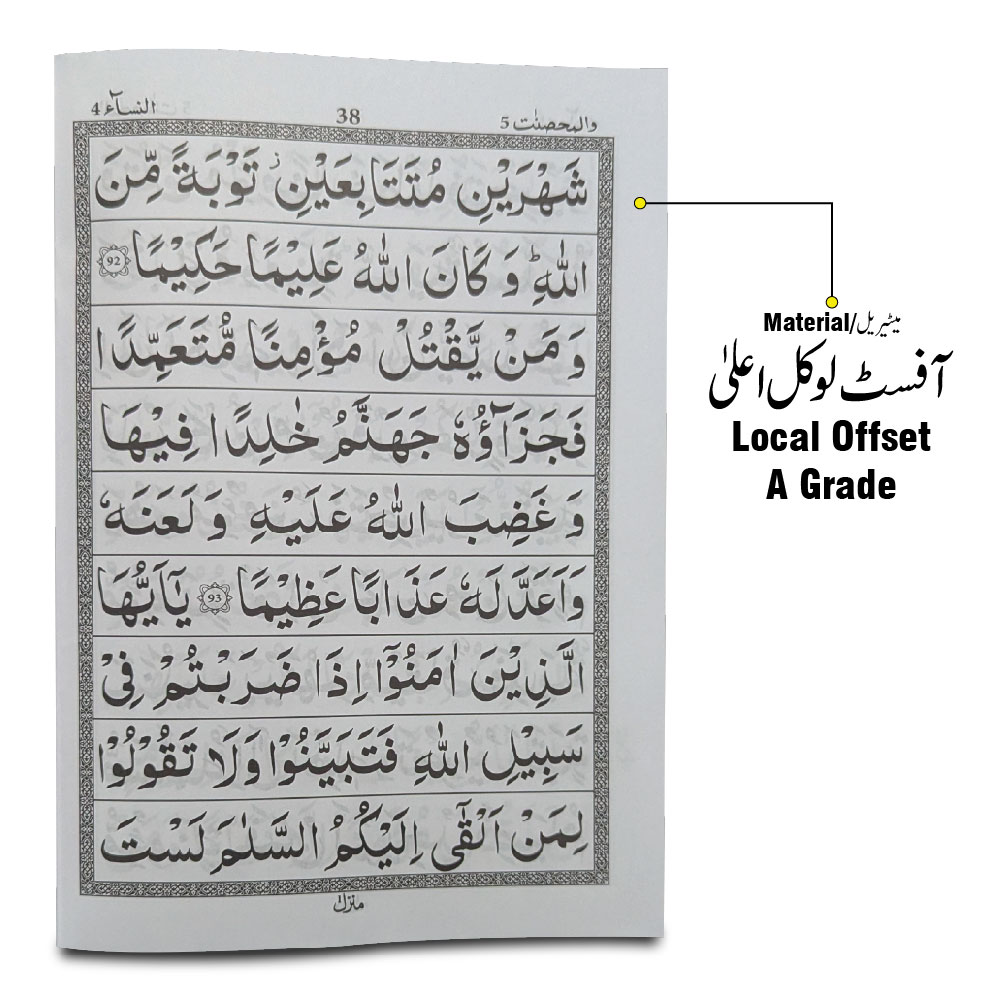 النسآء 4
38
والمحصنت 5
شَهْرَيْنِ مُتَتَابِعَيْنِ ز تَوْبَةً مِّنَ
اللّٰهِ ؕ وَ كَانَ اللّٰهُ عَلِيْمًا حَكِيْمًا 92
وَ مَنْ يَّقْتُلْ مُؤْمِنًا مُّتَعَمِّدًا
فَجَزَآؤُهٗ جَهَنَّمُ خٰلِدًا فِيْهَا
وَ غَضِبَ اللّٰهُ عَلَيْهِ وَ لَعَنَهٗ
وَاَعَدَّ لَهٗ عَذَابًا عَظِيْمًا 93 يٰۤاَيُّهَا
الَّذِيْنَ اٰمَنُوْۤا اِذَا ضَرَبْتُمْ فِيْ
سَبِيْلِ اللّٰهِ فَتَبَيَّنُوْا وَلَا تَقُوْلُوْا
لِمَنْ اَلْقٰۤى اِلَيْكُمُ السَّلٰمَ لَسْتَ
منزل ۱
Material/میٹیریل
آفسٹ لوکل اعلیٰ
Local Offset
A Grade